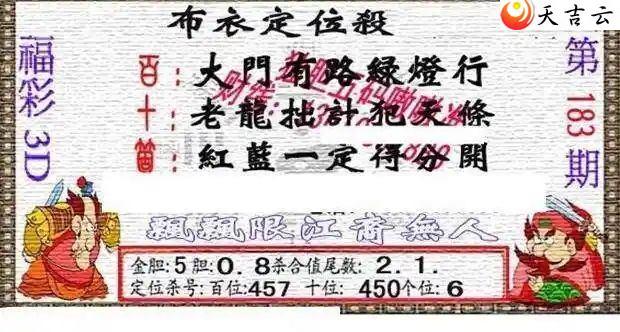 天吉云
布衣定位殺
福彩3D
第183期
百:大門有路綠燈行
十:老龍拙計犯天條
個:紅藍一定得分開
飄飄限江裔無人
金胆:5胆:0.8杀合值尾数:2.1.
定位杀号:百位:457 十位:450个位:6